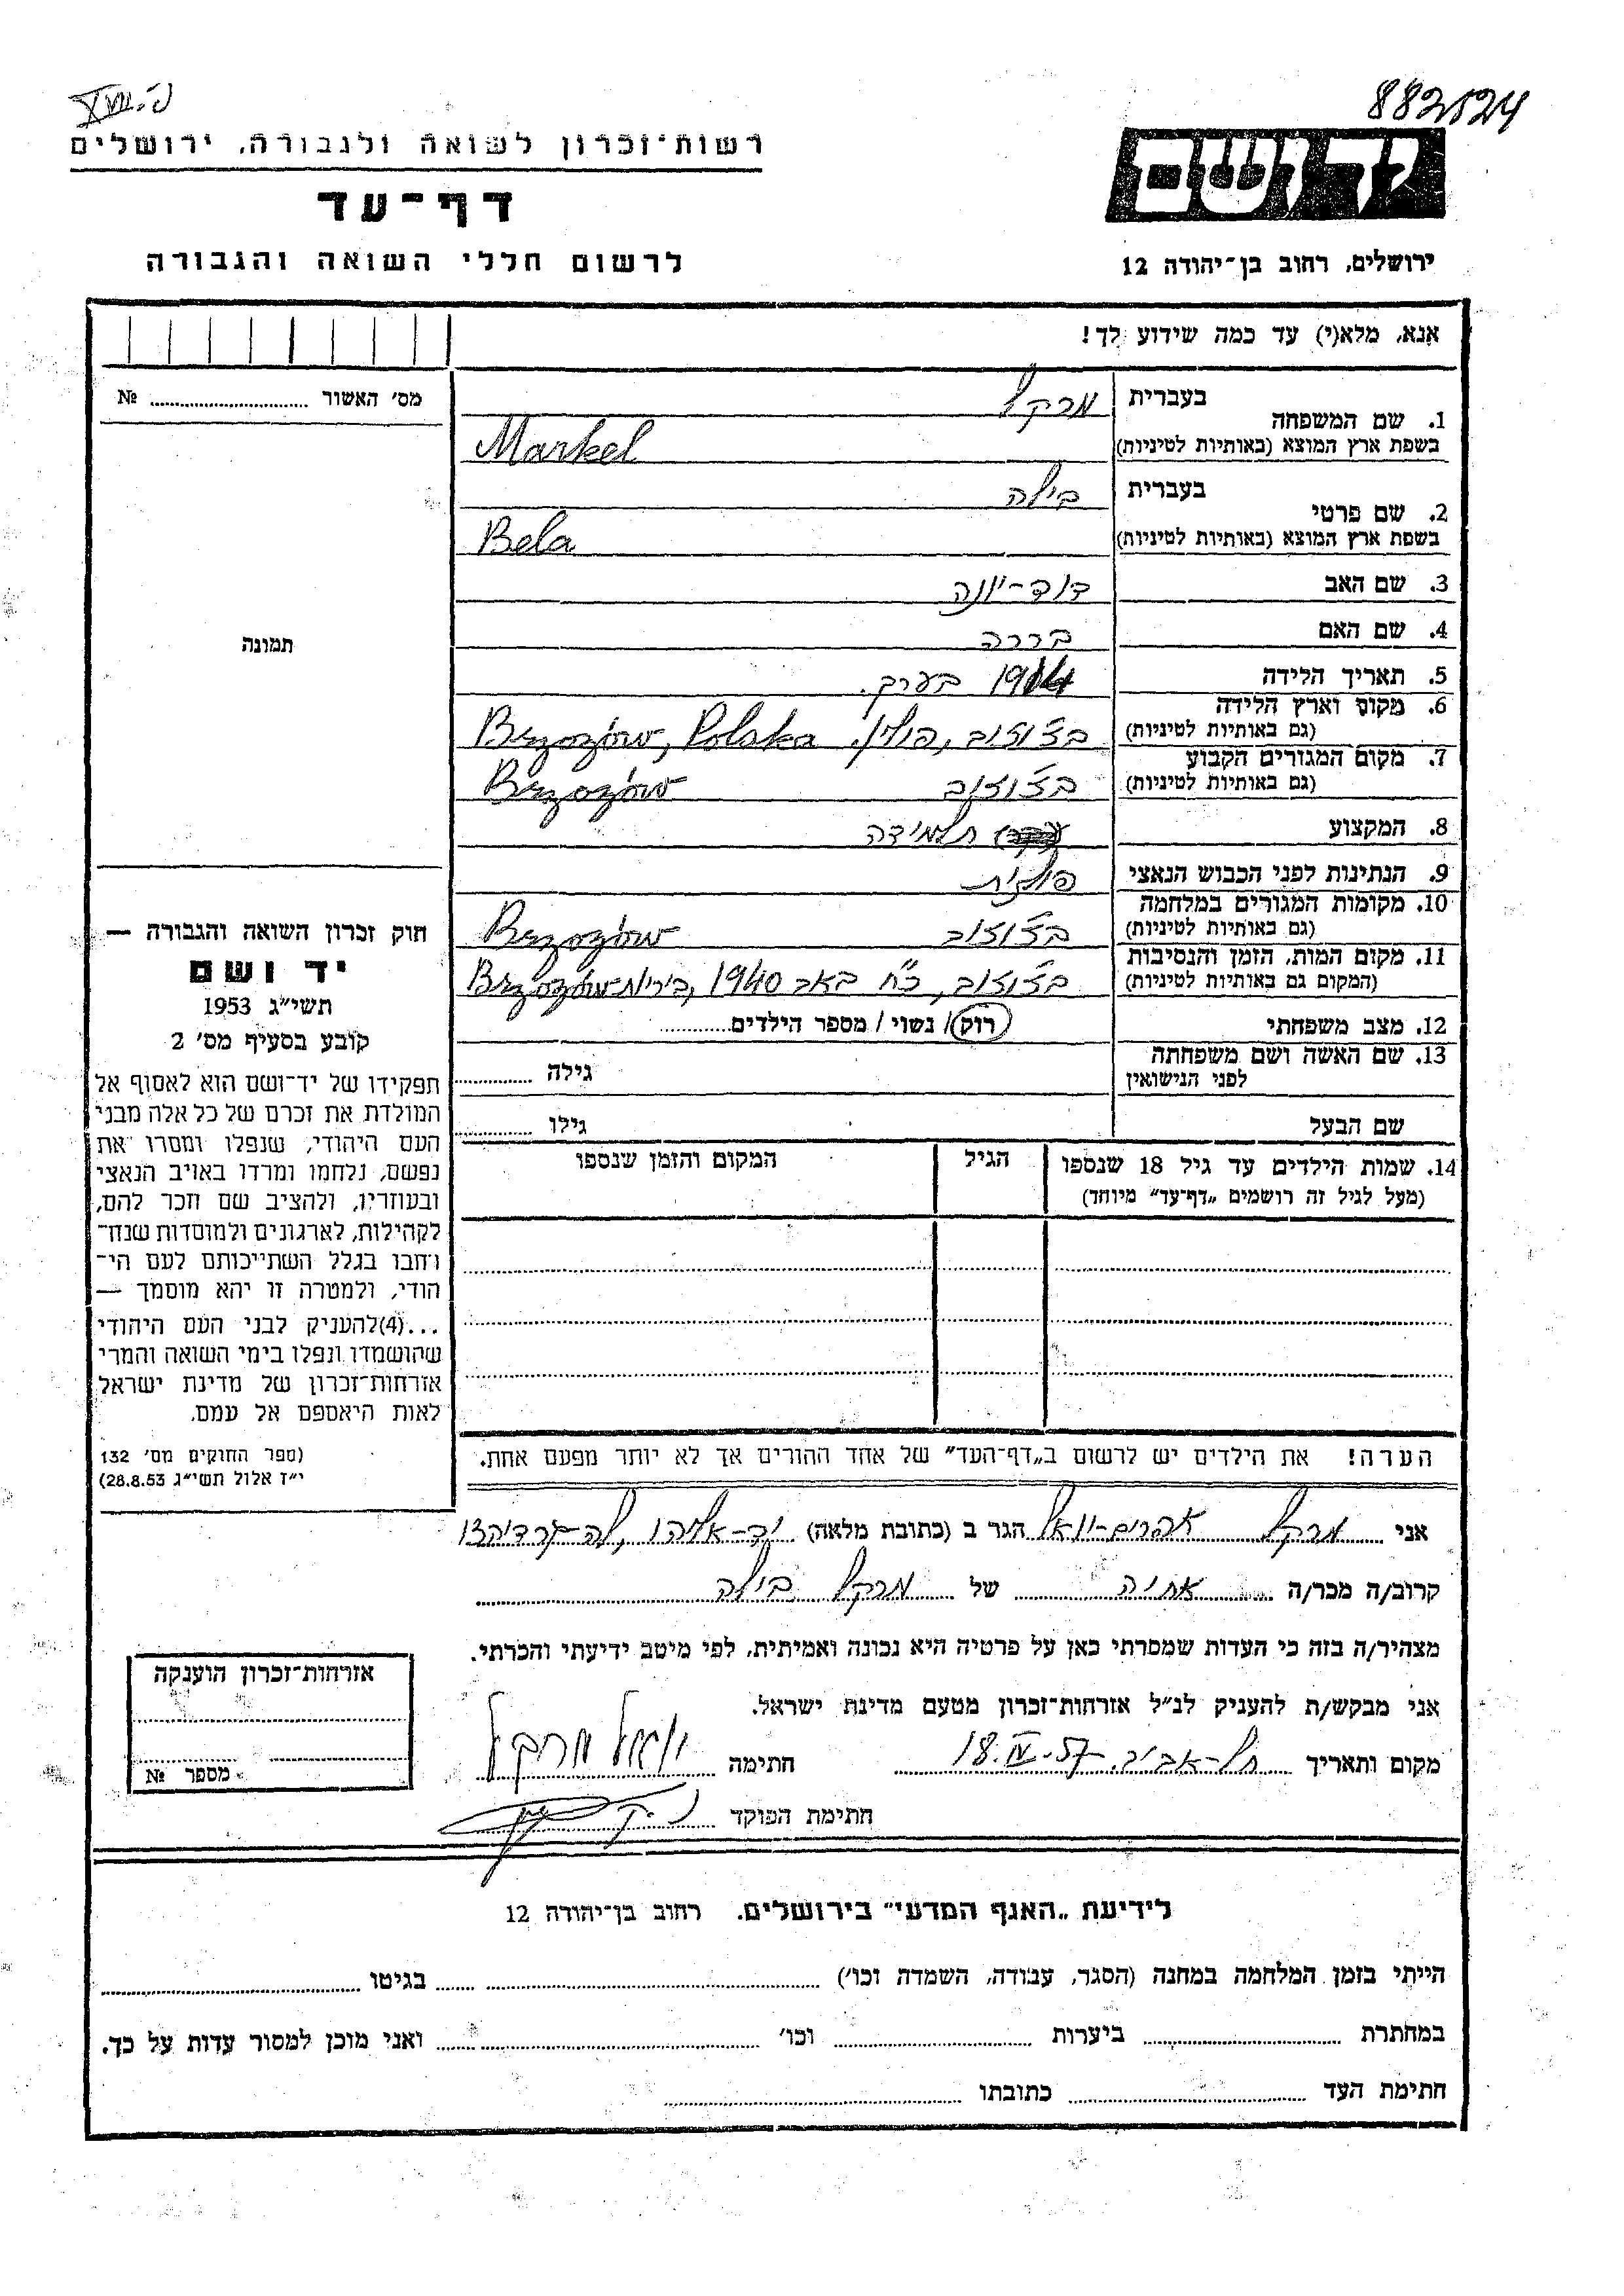 882524
רשות־זכרון לשואה ולגבורה, ירושלים
דף־עד
לרשום חללי השואה והגבורה
יד ושם
ירושלים, רחוב בן־יהודה 12
אנא, מלא(י) עד כמה שידוע לך!
מס׳ האשור № 
תמונה
1. שם המשפחה
בעברית מרקל
בשפת ארץ המוצא (באותיות לטיניות) Markel
2. שם פרטי
בעברית בילה
בשפת ארץ המוצא (באותיות לטיניות) Bela
3. שם האב דוד-יונה
4. שם האם
5. תאריך הלידה 1914 בערך.
6. מקום וארץ הלידה
(גם באותיות לטיניות) בז'וזוב, פולין. Brzozów, Polska
7. מקום המגורים הקבוע
(גם באותיות לטיניות) בז'וזוב Brzozów
8. המקצוע תלמידה
9. הנתינות לפני הכבוש הנאצי פולנית
10. מקומות המגורים במלחמה
(גם באותיות לטיניות) בז'וזוב Brzozów
11. מקום המות, הזמן והנסיבות
(המקום גם באותיות לטיניות) בז'וזוב, כ"ח באב 1940, ביריות Brzozów
12. מצב משפחתי רוק / נשוי / מספר הילדים
13. שם האשה ושם משפחתה
לפני הנישואין גילה
שם הבעל גילו
14. שמות הילדים עד גיל 18 שנספו
(מעל לגיל זה רושמים „דף־עד" מיוחד)
הגיל
המקום והזמן שנספו
חוק זכרון השואה והגבורה —
יד ושם
תשי"ג 1953
קובע בסעיף מס׳ 2
תפקידו של יד־ושם הוא לאסוף אל
המולדת את זכרם של כל אלה מבני
העם היהודי, שנפלו ומסרו את
נפשם, נלחמו ומרדו באויב הנאצי
ובעוזריו, ולהציב שם וזכר להם,
לקהילות, לארגונים ולמוסדות שנח־
רחבו בגלל השתייכותם לעם הי־
הודי, ולמטרה זו יהא מוסמך —
...(4)להעניק לבני העם היהודי
שהושמדו ונפלו בימי השואה והמרי
אזרחות־זכרון של מדינת ישראל
לאות היאספם אל עמם.
(ספר החוקים מס׳ 132
י"ז אלול תשי"ג 28.8.53)
הערה! את הילדים יש לרשום ב„דף־העד" של אחד ההורים אך לא יותר מפעם אחת.
אני מרקל אפרים-יואל הגר ב (כתובת מלאה) יד-אליהו,
קרוב/ה מכר/ה אחיה של מרקל בילה
מצהיר/ה בזה כי העדות שמסרתי כאן על פרטיה היא נכונה ואמיתית, לפי מיטב ידיעתי והכרתי.
אני מבקש/ת להעניק לנ"ל אזרחות־זכרון מטעם מדינת ישראל.
מקום ותאריך תל-אביב, 18.IV.57 חתימה יואל מרקל
חתימת הפוקד
אזרחות־זכרון הוענקה
מספר №
לידיעת „האגף המדעי" בירושלים, רחוב בן־יהודה 12
הייתי בזמן המלחמה במחנה (הסגר, עבודה, השמדה וכו׳) בגיטו
במחתרת ביערות וכו׳ ואני מוכן למסור עדות על כך.
חתימת העד כתובתו